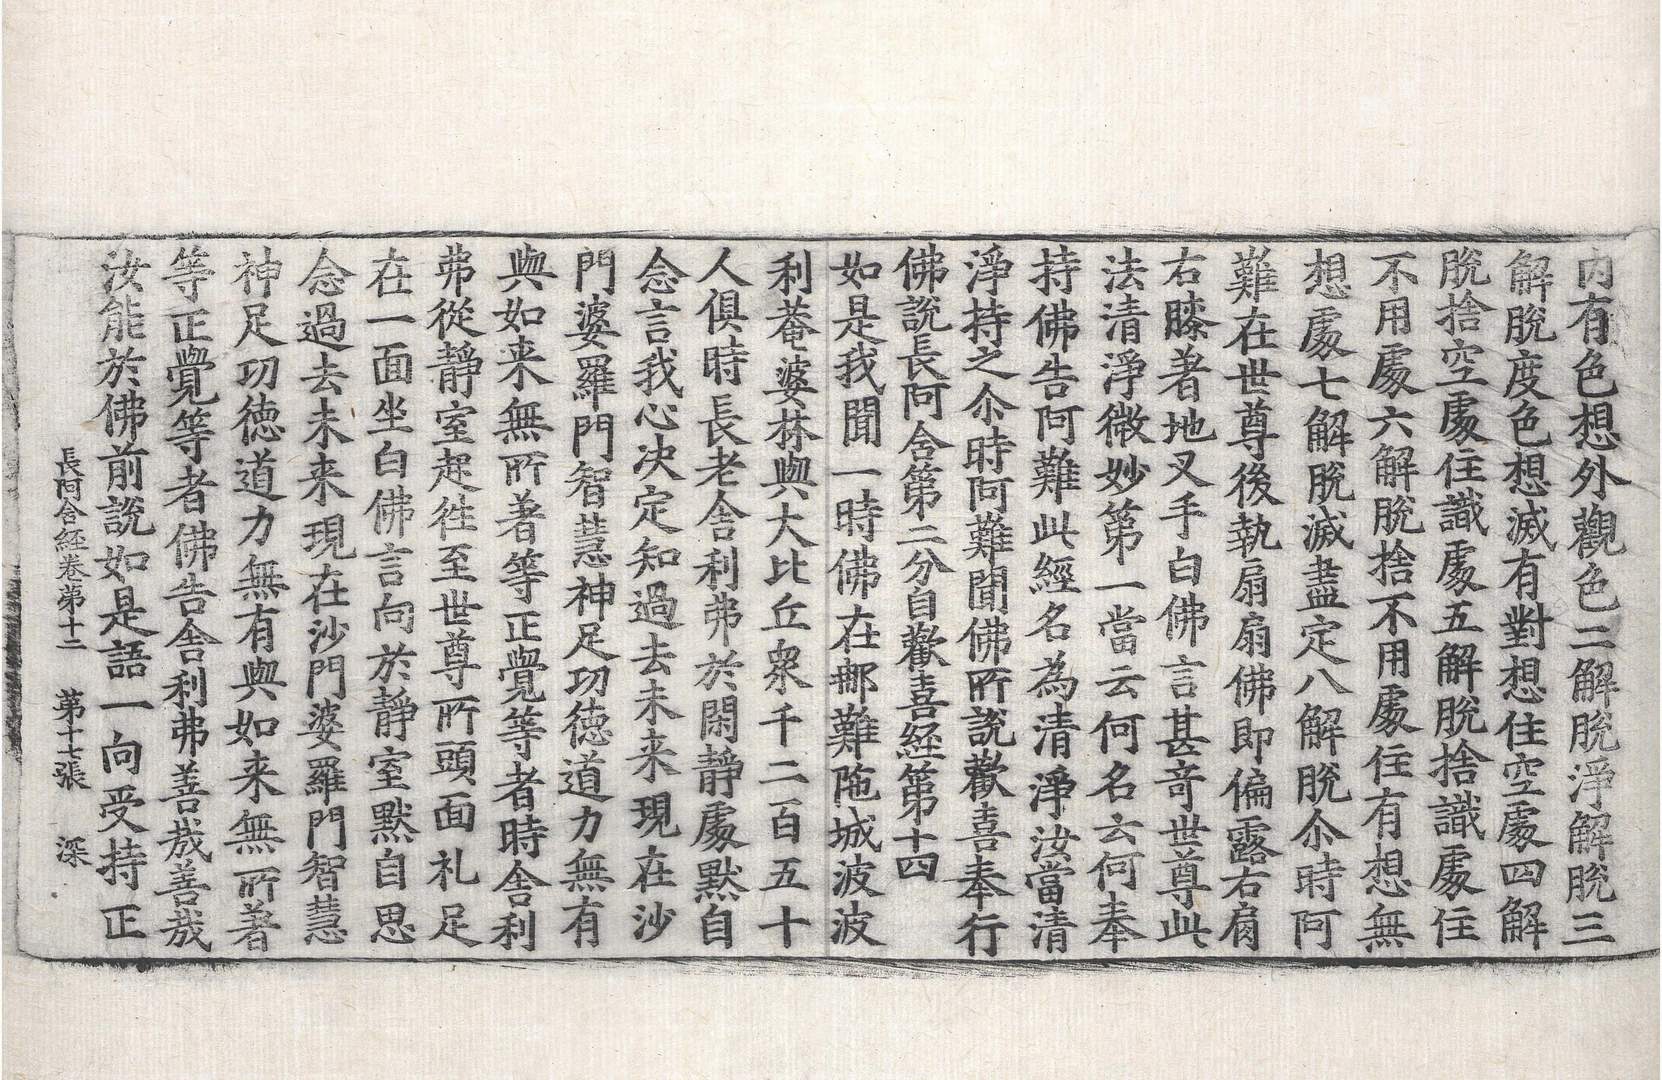 內有色想外觀色二解脫淨解脫三
解脫度色想滅有對想住空處四解
脫捨空處住識處五解脫捨識處住
不用處六解脫捨不用處住有想無
想處七解脫滅盡定八解脫尒時阿
難在世尊後執扇扇佛即偏露右肩
右膝著地叉手白佛言甚竒世尊此
法清淨微妙第一當云何名云何奉
持佛告阿難此經名為清淨汝當清
淨持之尒時阿難聞佛所說歡喜奉行
佛說長阿含第二分自歡喜經第十四
如是我聞一時佛在那難陁城波波
利菴婆林與大比丘衆千二百五十
人俱時長老舍利弗於閑靜處默自
念言我心决定知過去未来現在沙
門婆羅門智慧神足功德道力無有
與如来無所著等正覺等者時舍利
弗從靜室起徃至世尊所頭面礼足
在一面坐白佛言向於靜室默自思
念過去未来現在沙門婆羅門智慧
神足功德道力無有與如来無所著
等正覺等者佛告舍利弗善哉善哉
汝能於佛前說如是語一向受持正
長阿含経卷第十二 第十七張 深